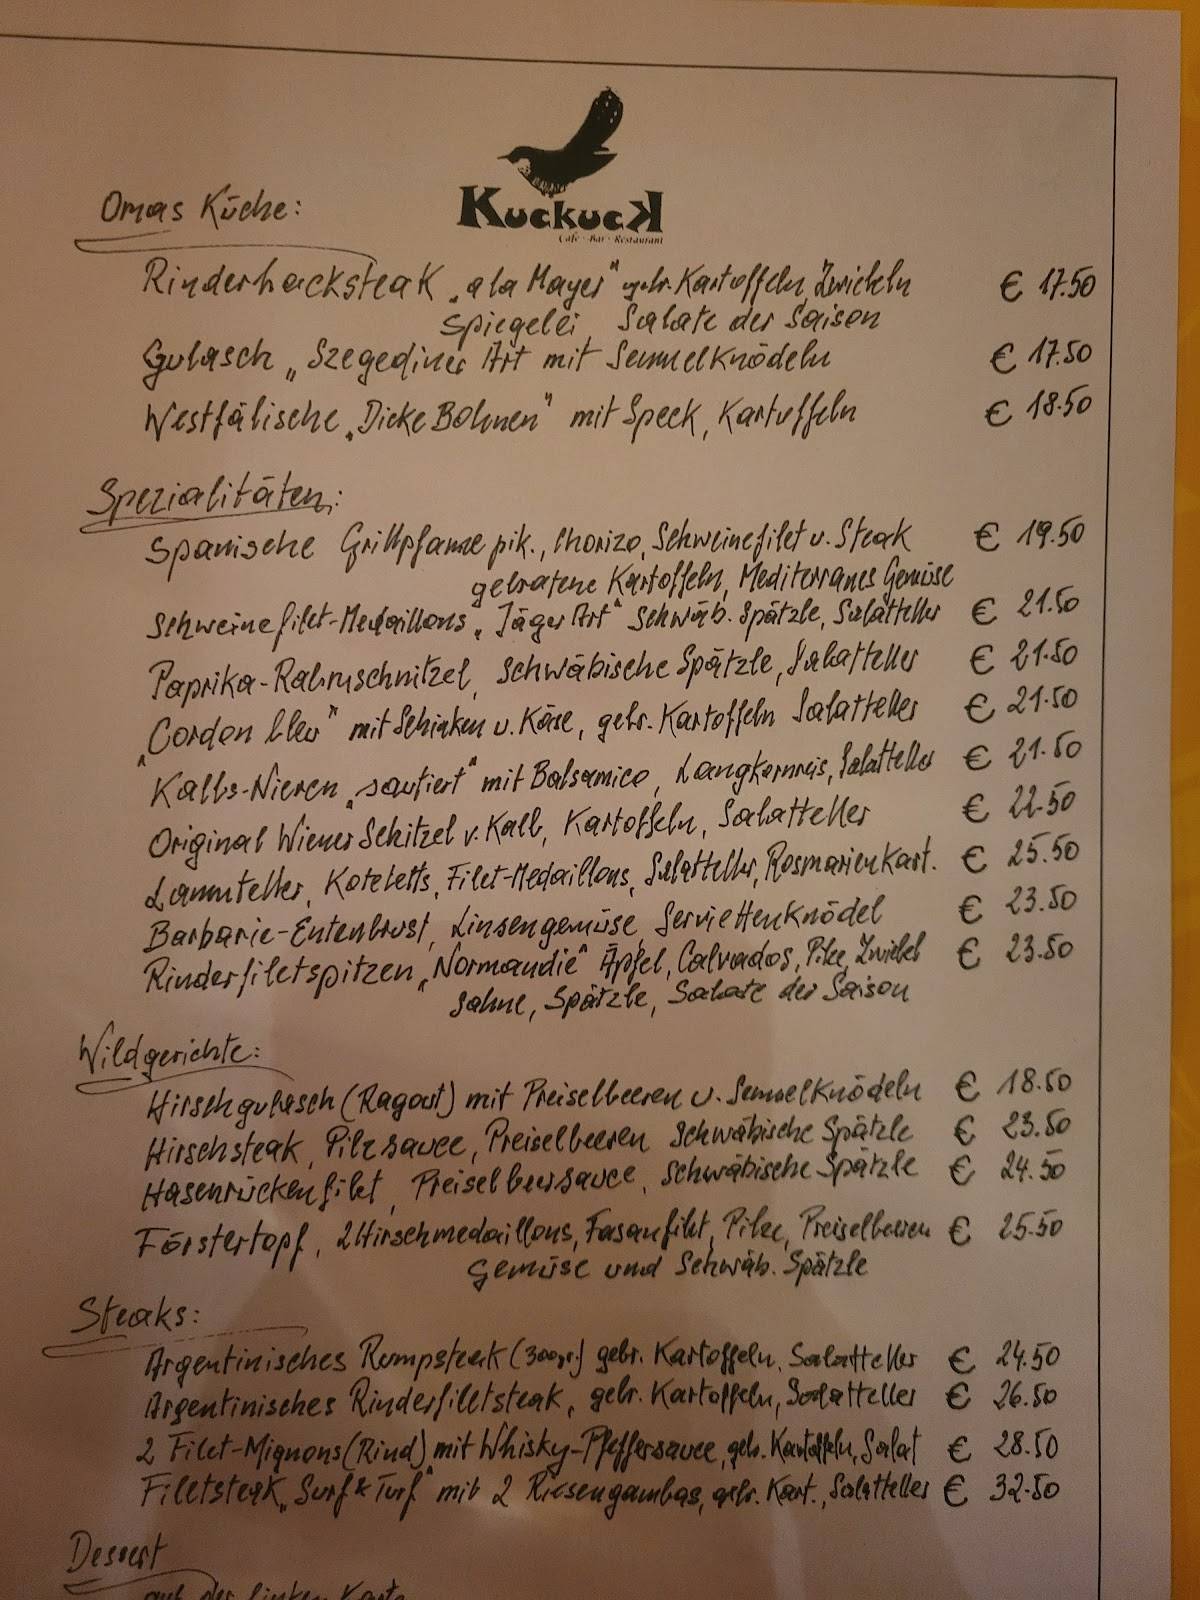 Kuckuck
Cafe · Bar · Restaurant
Omas Küche:
Rinderhacksteak „a la Mayer" gebr. Kartoffeln, Zwiebeln € 17.50
Spiegelei, Salate der Saison
Gulasch „Szegediner Art mit Semmelknödeln € 17.50
Westfälische „Dicke Bohnen" mit Speck, Kartoffeln € 18.50
Spezialitäten:
Spanische Grillpfanne pik., Chorizo, Schweinefilet u. Steak € 19.50
gebratene Kartoffeln, Mediterranes Gemüse
Schweinefilet-Medaillons „Jäger Art" Schwäb. Spätzle, Salatteller € 21.50
Paprika-Rahmschnitzel, Schwäbische Spätzle, Salatteller € 21.50
„Cordon bleu" mit Schinken u. Käse, gebr. Kartoffeln Salatteller € 21.50
Kalbs-Nieren „sautiert" mit Balsamico, Langkornreis, Salatteller € 21.50
Original Wiener Schitzel v. Kalb, Kartoffeln, Salatteller € 22.50
Lammteller, Koteletts, Filet-Medaillons, Salatteller, Rosmarienkart. € 25.50
Barbarie-Entenbrust, Linsengemüse, Serviettenknödel € 23.50
Rinderfiletspitzen „Normandie" Äpfel, Calvados, Pilze, Zwiebel € 23.50
Sahne, Spätzle, Salate der Saison
Wildgerichte:
Hirschgulasch (Ragout) mit Preiselbeeren u. Semmelknödeln € 18.50
Hirschsteak, Pilzsauce, Preiselbeeren Schwäbische Spätzle € 23.50
Hasenrückenfilet, Preiselbeersauce, Schwäbische Spätzle € 24.50
Förstertopf, 2 Hirschmedaillons, Fasanfilet, Pilze, Preiselbeeren € 25.50
Gemüse und Schwäb. Spätzle
Steaks:
Argentinisches Rumpsteak (300gr.) gebr. Kartoffeln, Salatteller € 24.50
Argentinisches Rinderfiletsteak, gebr. Kartoffeln, Salatteller € 26.50
2 Filet-Mignons (Rind) mit Whisky-Pfeffersauce, geb. Kartoffeln, Salat € 28.50
Filetsteak „Surf & Turf" mit 2 Riesengambas, gebr. Kart., Salatteller € 32.50
Dessert
auf der linken Karte